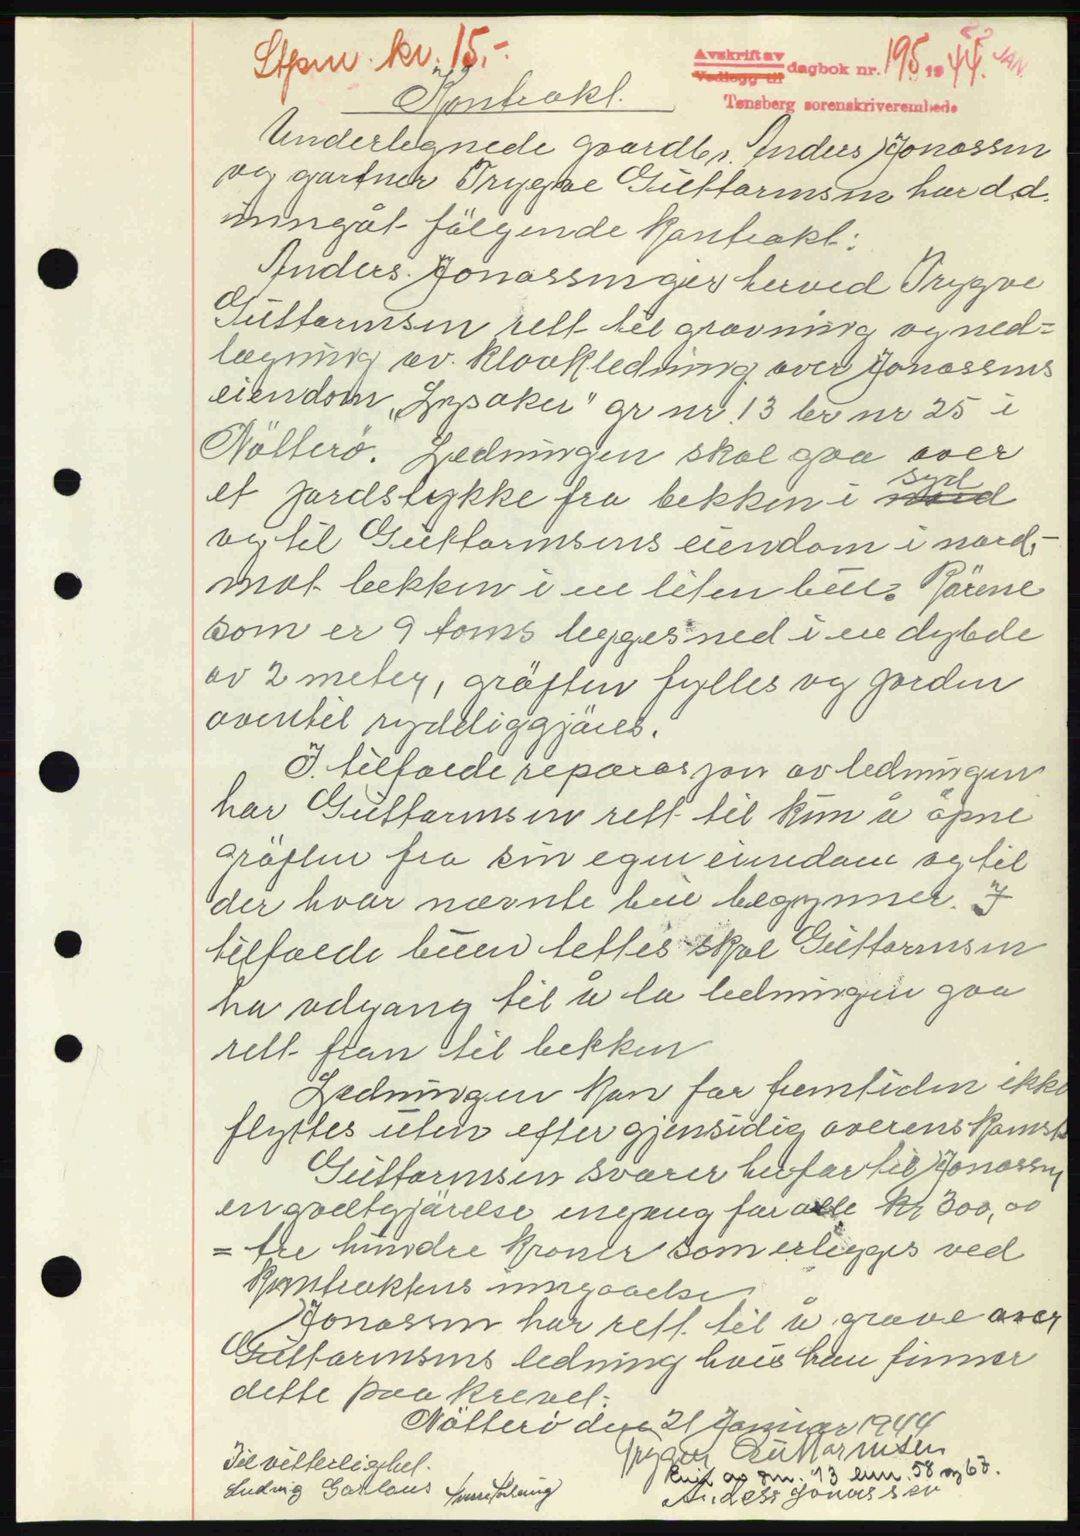 Stpm. kr. 15,-
Avskrift av
Vedlegg til
dagbok nr. 195 1944. 22 JAN.
Tønsberg sorenskriverembede
Kontrakt.
Undertegnede gaardbr. Anders Jonassen
og gartner Trygve Guttormsen har d.d.
inngåt følgende kontrakt:
Anders Jonassen gir herved Trygve
Guttormsen rett til gravning og ned=
lægning av kloakledning over Jonassens
eiendom „Lysaker" gr nr 13 br nr 25 i
Nötterö. Ledningen skal gaa over
et jordstykke fra bekken i nord syd
og til Guttormsens eiendom i nord,-
mot bekken i en liten bue. Rörene
som er 9 toms legges ned i en dybde
av 2 meter, gröften fylles og jorden
oventil ryddiggjöres.
I tilfælde reparasjon av ledningen
har Guttormsen rett til kun å åpne
gröften fra sin egen eiendom og til
der hvor nævnte bue begynner. I
tilfælde buen tettes skal Guttormsen
ha adgang til å la ledningen gaa
rett fram til bekken
Ledningen kan for fremtiden ikke
flyttes uten efter gjensidig overenskomst
Guttormsen svarer herfor til Jonassen
en godtgjörelse engang for alle kr 300,00
= tre hundre kroner som erlegges ved
kontraktens inngaaelse
Jonassen har rett til å grave over
Guttormsens ledning hvis han finner
dette paakrevet.
Nötterö den 21 Januar 1944
Trygve Guttormsen
Til vitterlighet.
Eier av gnr. 13 bnr. 58 og 67.
Ludvig
Anders Jonassen